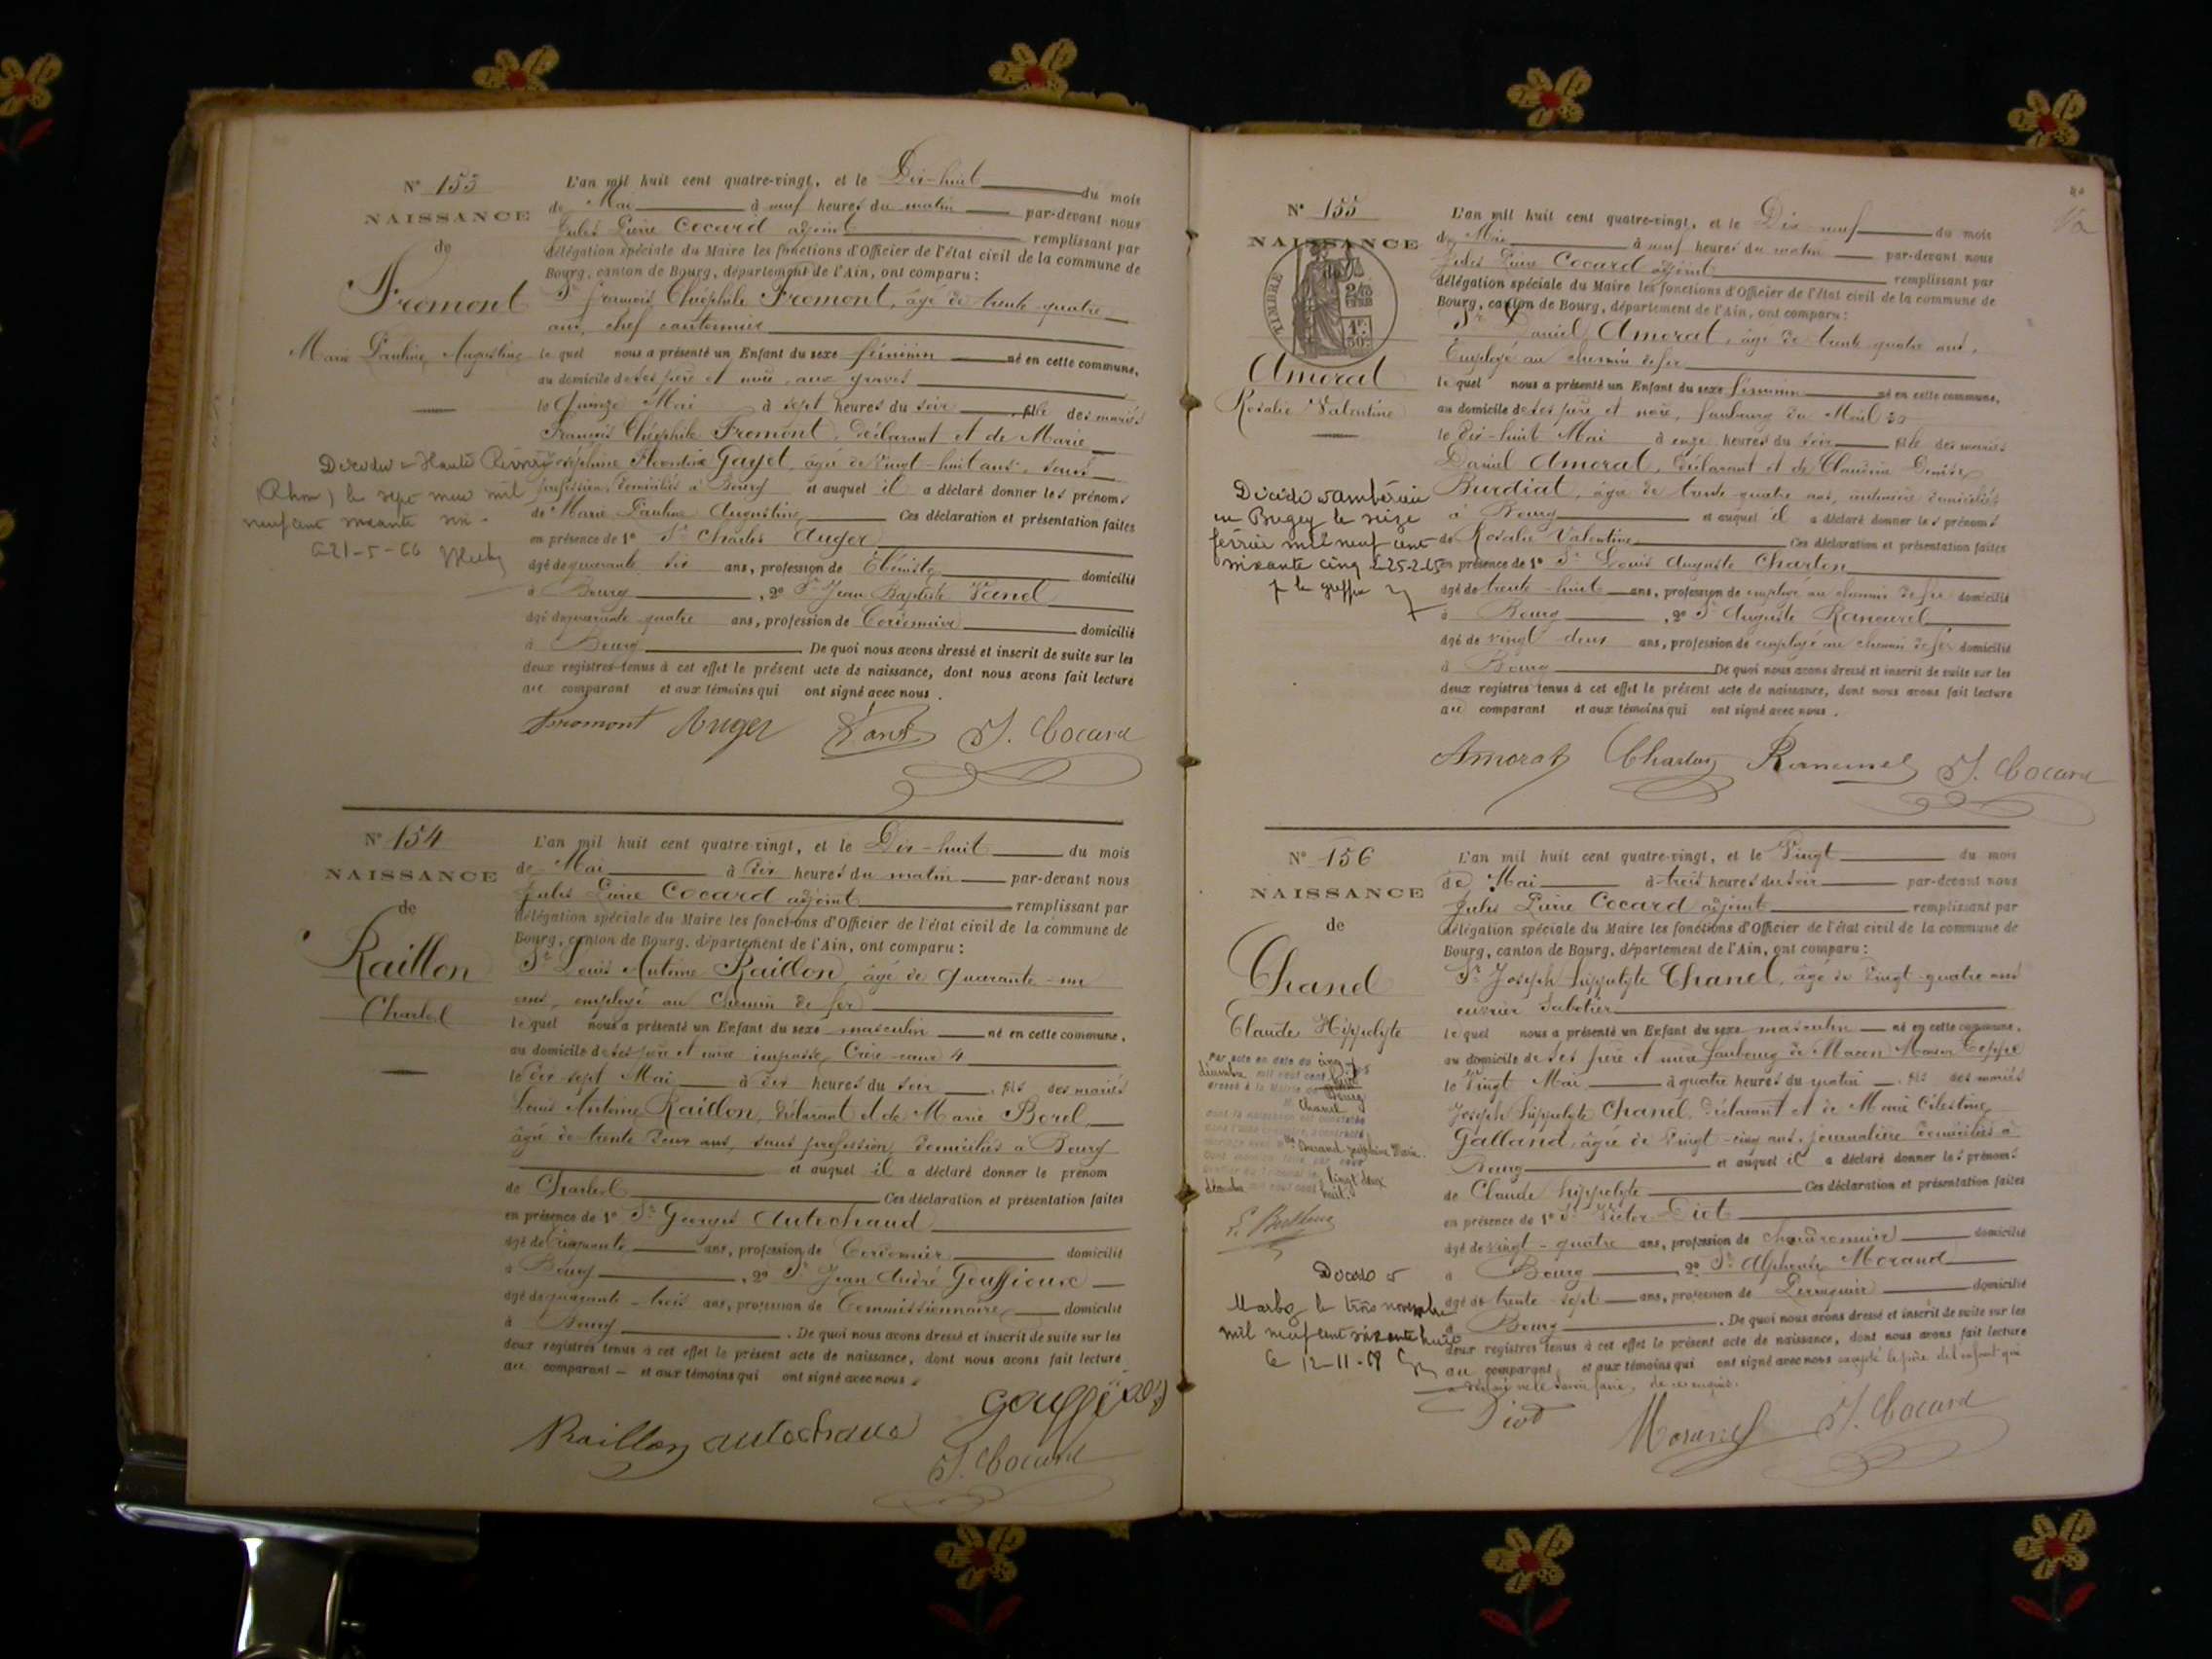 N° 153
NAISSANCE
de
Fromont
Marie Pauline Augustine
L'an mil huit cent quatre-vingt, et le Dix-huit du mois
de Mai à neuf heures du matin par-devant nous
Jules Pierre Cocard adjoint remplissant par
délégation spéciale du Maire les fonctions d'Officier de l'état civil de la commune de
Bourg, canton de Bourg, département de l'Ain, ont comparu :
Sr François Théophile Fromont, âgé de trente-quatre
ans, chef cantonnier
le quel nous a présenté un Enfant du sexe féminin né en cette commune,
au domicile de ses père et mère, aux
le Quinze Mai à sept heures du soir, fille des mariés
François Théophile Fromont, déclarant et de Marie
Joséphine Gayet, âgée de Vingt-huit ans, sans
profession, domiciliés à Bourg et auquel il a déclaré donner les prénoms
de Marie Pauline Augustine Ces déclaration et présentation faites
en présence de 1° Sr Charles Auger
âgé de quarante six ans, profession de Ébéniste domicilié
à Bourg, 2° Sr Jean Baptiste
âgé de quarante-quatre ans, profession de Cordonnier domicilié
à Bourg De quoi nous avons dressé et inscrit de suite sur les
deux registres tenus à cet effet le présent acte de naissance, dont nous avons fait lecture
au comparant et aux témoins qui ont signé avec nous.
(Rhône) le sept mai mil
neuf cent soixante six.
21-5-66
Fromont Auger J. Cocard
N° 154
NAISSANCE
de
Raillon
Charles
L'an mil huit cent quatre-vingt, et le Dix-huit du mois
de Mai à dix heures du matin par-devant nous
Jules Pierre Cocard adjoint remplissant par
délégation spéciale du Maire les fonctions d'Officier de l'état civil de la commune de
Bourg, canton de Bourg, département de l'Ain, ont comparu :
Sr Louis Antoine Raillon, âgé de quarante-un
ans, employé au Chemin de fer
le quel nous a présenté un Enfant du sexe masculin né en cette commune,
au domicile de ses père et mère impasse Crève-cœur 4
le dix-sept Mai à dix heures du soir, fils des mariés
Louis Antoine Raillon, déclarant et de Marie Borel
âgée de trente deux ans, sans profession, domiciliés à Bourg
et auquel il a déclaré donner le prénom
de Charles Ces déclaration et présentation faites
en présence de 1° Sr Georges Autechaud
âgé de cinquante ans, profession de Cordonnier domicilié
à Bourg, 2° Sr Jean André Gouffioux
âgé de quarante-trois ans, profession de Commissionnaire domicilié
à Bourg. De quoi nous avons dressé et inscrit de suite sur les
deux registres tenus à cet effet le présent acte de naissance, dont nous avons fait lecture
au comparant et aux témoins qui ont signé avec nous.
Raillon autechaud
J. Cocard
80
N° 155
NAISSANCE
de
TIMBRE
1F.
50c.
Amorat
Rosalie Valentine
L'an mil huit cent quatre-vingt, et le Dix-neuf du mois
de Mai à neuf heures du matin par-devant nous
Jules Pierre Cocard adjoint remplissant par
délégation spéciale du Maire les fonctions d'Officier de l'état civil de la commune de
Bourg, canton de Bourg, département de l'Ain, ont comparu :
Sr Daniel Amorat, âgé de trente quatre ans,
Employé au chemin de fer
le quel nous a présenté un Enfant du sexe féminin né en cette commune,
au domicile de ses père et mère, faubourg du
le dix-huit Mai à onze heures du soir fille des mariés
Daniel Amorat, déclarant et de Claudine
Burdiat, âgée de trente-quatre ans, domiciliés
à Bourg et auquel il a déclaré donner les prénoms
de Rosalie Valentine Ces déclaration et présentation faites
en présence de 1° Sr Louis Auguste Charlon
âgé de trente-huit ans, profession de employé au chemin de fer domicilié
à Bourg, 2° Sr Auguste
âgé de vingt deux ans, profession de employé au chemin de fer domicilié
à Bourg De quoi nous avons dressé et inscrit de suite sur les
deux registres tenus à cet effet le présent acte de naissance, dont nous avons fait lecture
au comparant et aux témoins qui ont signé avec nous.
Décédée à Ambérieu
en Bugey le seize
février mil neuf cent
soixante cinq le 25-2-65
Amorat J. Cocard
N° 156
NAISSANCE
de
Chanel
Claude Hippolyte
L'an mil huit cent quatre-vingt, et le Vingt du mois
de Mai à trois heures du soir par-devant nous
Jules Pierre Cocard adjoint remplissant par
délégation spéciale du Maire les fonctions d'Officier de l'état civil de la commune de
Bourg, canton de Bourg, département de l'Ain, ont comparu :
Sr Joseph hippolyte Chanel, âgé de vingt-quatre ans
ouvrier Sabotier
le quel nous a présenté un Enfant du sexe masculin né en cette commune,
au domicile de ses père et mère faubourg de Macon Maison
le Vingt Mai à quatre heures du matin, fils des mariés
Joseph hippolyte Chanel, déclarant et de Marie Célestine
Galland, âgée de Vingt-cinq ans, journalière domiciliés à
Bourg et auquel il a déclaré donner les prénoms
de Claude hippolyte Ces déclaration et présentation faites
en présence de 1° Sr Victor Diot
âgé de vingt-quatre ans, profession de domicilié
à Bourg, 2° Sr Alphonse Morand
âgé de trente-sept ans, profession de Perruquier domicilié
à Bourg. De quoi nous avons dressé et inscrit de suite sur les
deux registres tenus à cet effet le présent acte de naissance, dont nous avons fait lecture
au comparant et aux témoins qui ont signé avec nous excepté le père de l'enfant qui
a déclaré ne le savoir faire, de ce requis.
Par acte en date du cinq
décembre mil neuf cent huit
dressé à la Mairie de Bourg
Chanel
Durand Joséphine Marie
vingt deux
décembre mil neuf cent huit
Décédé à
Marboz le trois novembre
mil neuf cent soixante huit
le 12-11-68
Diot Morand J. Cocard